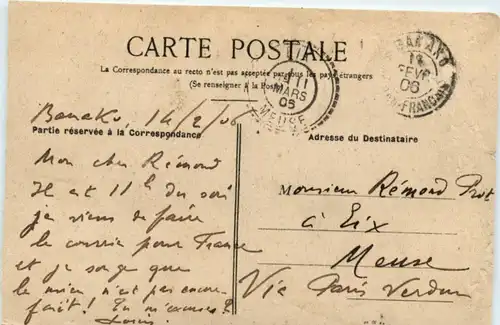 CARTE POSTALE
La Correspondance au recto n'est pas acceptée par tous les pays étrangers
(Se renseigner à la Poste)
BAMAKO
FEVR
06
11
MARS
06
MEUSE
Bamako, 14/2/06
Partie réservée à la Correspondance
Adresse du Destinataire
Mon cher Rémond
Il est 11h du soir
je viens de faire
le courrier pour France
et je songe que
le mien n'est pas encore
fait! Tu m'excuses?
Monsieur Rémond Prot
à Eix
Meuse
Via Paris Verdun